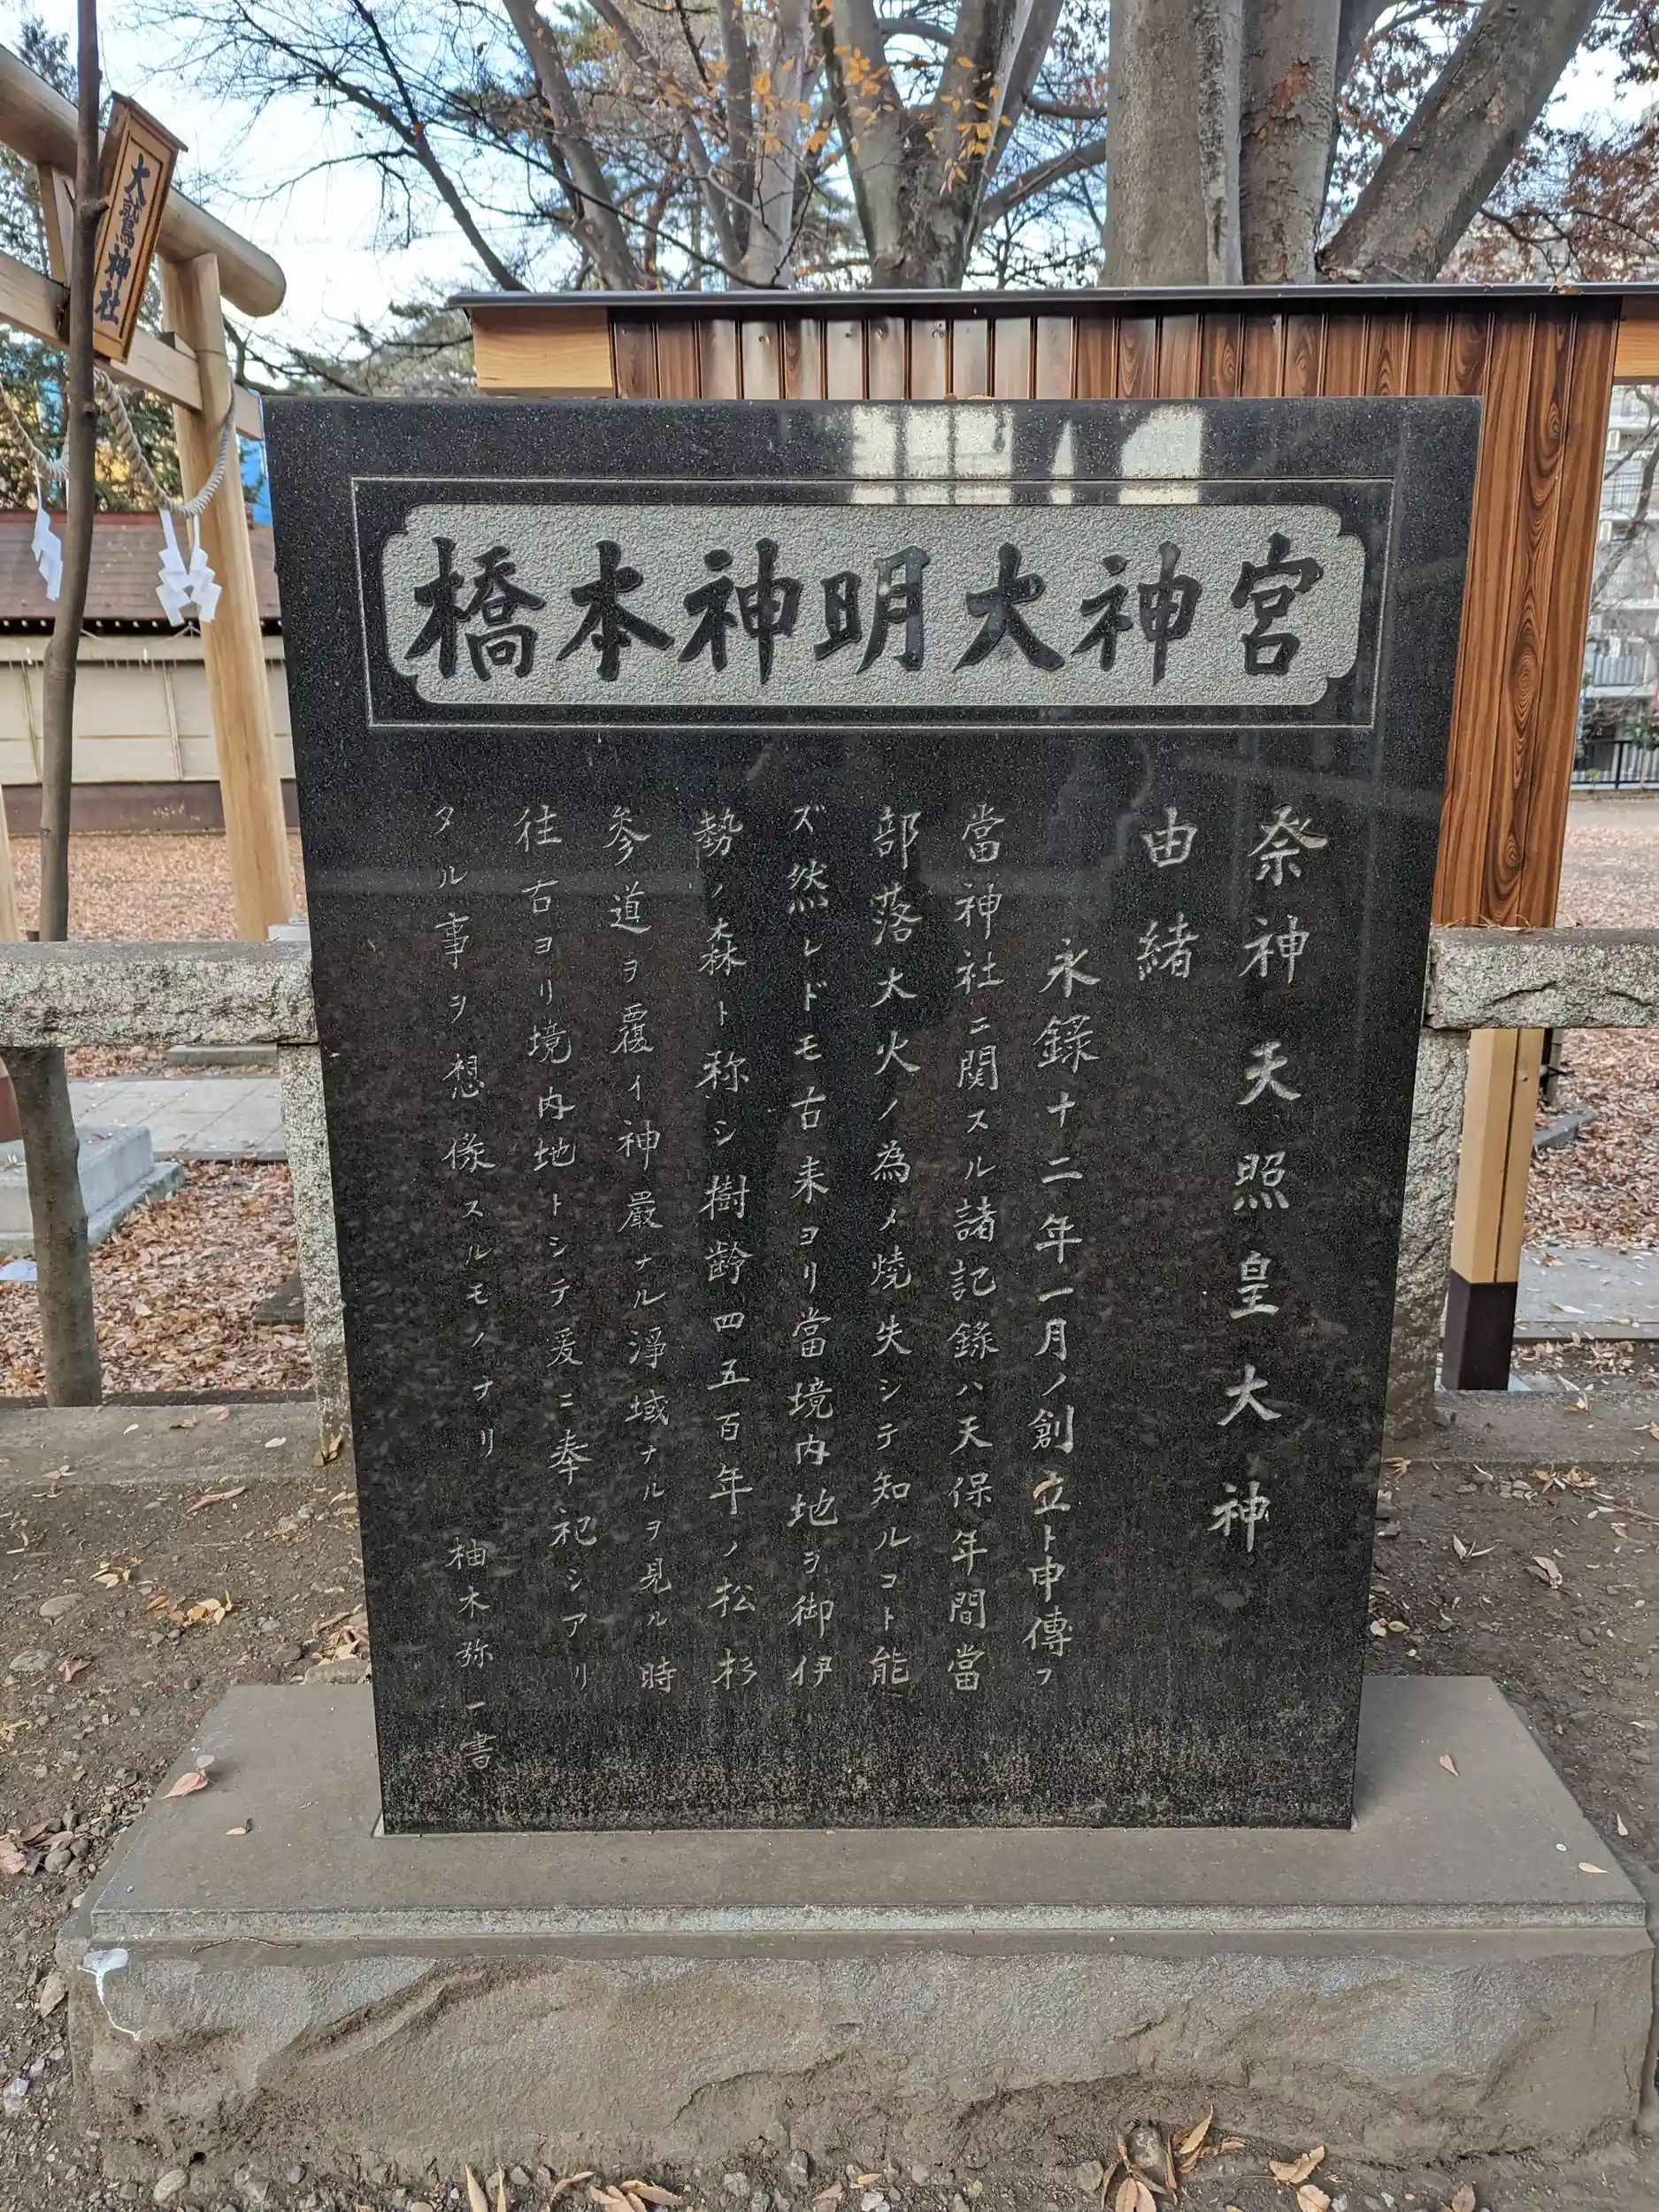 大鷲神社
橋本神明大神宮
祭神天照皇大神
由緒
永録十二年一月ノ創立ト申傳フ
當神社ニ関スル諸記録ハ天保年間當
部落大火ノ為メ焼失シテ知ルコト能
ズ然レドモ古来ヨリ當境内地ヲ御伊
勢ノ森ト称シ樹齢四五百年ノ松杉
参道ヲ覆イ神嚴ナル淨域ナルヲ見ル時
往古ヨリ境内地トシテ爰ニ奉祀シアリ
タル事ヲ想像スルモノナリ 柚木弥一書